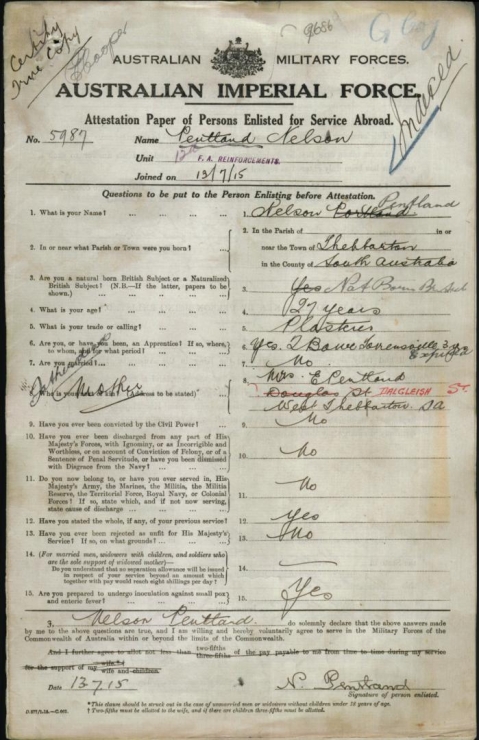 9686
Certify
true Copy
G Cooper
AUSTRALIAN MILITARY FORCES.
AUSTRALIAN IMPERIAL FORCE.
Indexed.
Attestation Paper of Persons Enlisted for Service Abroad.
No. 5987 Name Pentland Nelson
Unit F. A. REINFORCEMENTS.
Joined on 13/7/15
Questions to be put to the Person Enlisting before Attestation.
1. What is your Name? ... ... ... 1. Nelson Pentland
2. In or near what Parish or Town were you born? ... 2. In the Parish of in or
near the Town of Thebbarton
in the County of South Australia
3. Are you a natural born British Subject or a Naturalized
British Subject? (N.B.—If the latter, papers to be
shown.) 3. Yes Nat Born Br Sub
4. What is your age? ... ... ... 4. 27 years
5. What is your trade or calling? ... ... 5. Plasterer
6. Are you, or have you been, an Apprentice? If so, where,
to whom, and for what period? ... 6. Yes. Townsville 3 yrs
Expired
7. Are you married? ... ... 7. No
Father dead
Mother
8. Who is your next of kin? (Address to be stated) 8. Mrs. E Pentland
Douglas St DALGLEISH St.
West Thebbarton SA
9. Have you ever been convicted by the Civil Power? ... 9. No
10. Have you ever been discharged from any part of His
Majesty's Forces, with Ignominy, or as Incorrigible and
Worthless, or on account of Conviction of Felony, or of a
Sentence of Penal Servitude, or have you been dismissed
with Disgrace from the Navy? ... 10. No
11. Do you now belong to, or have you ever served in, His
Majesty's Army, the Marines, the Militia, the Militia
Reserve, the Territorial Force, Royal Navy, or Colonial
Forces? If so, state which, and if not now serving,
state cause of discharge ... 11. No
12. Have you stated the whole, if any, of your previous service? 12. Yes
13. Have you ever been rejected as unfit for His Majesty's
Service? If so, on what grounds? ... 13. No
14. (For married men, widowers with children, and soldiers who
are the sole support of widowed mother)—
Do you understand that no separation allowance will be issued
in respect of your service beyond an amount which
together with pay would reach eight shillings per day? 14. —
15. Are you prepared to undergo inoculation against small pox
and enteric fever? 15. Yes
I, Nelson Pentland. do solemnly declare that the above answers made
by me to the above questions are true, and I am willing and hereby voluntarily agree to serve in the Military Forces of the
Commonwealth of Australia within or beyond the limits of the Commonwealth.
And I further agree to allot not less than two-fifths
three-fifths of the pay payable to me from time to time during my service
for the support of my wife
wife and children.
Date 13.7.15 N. Pentland
Signature of person enlisted.
*This clause should be struck out in the case of unmarried men or widowers without children under 18 years of age.
†Two-fifths must be allotted to the wife, and if there are children three-fifths must be allotted.